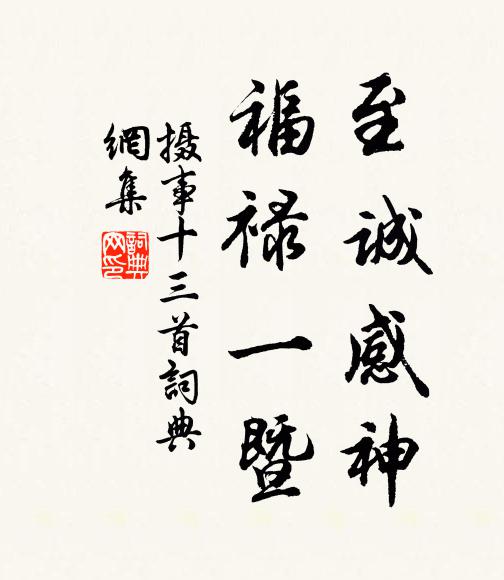 至誠感神
福禄一暨
摄事十三首詞典
網集
詞典网印